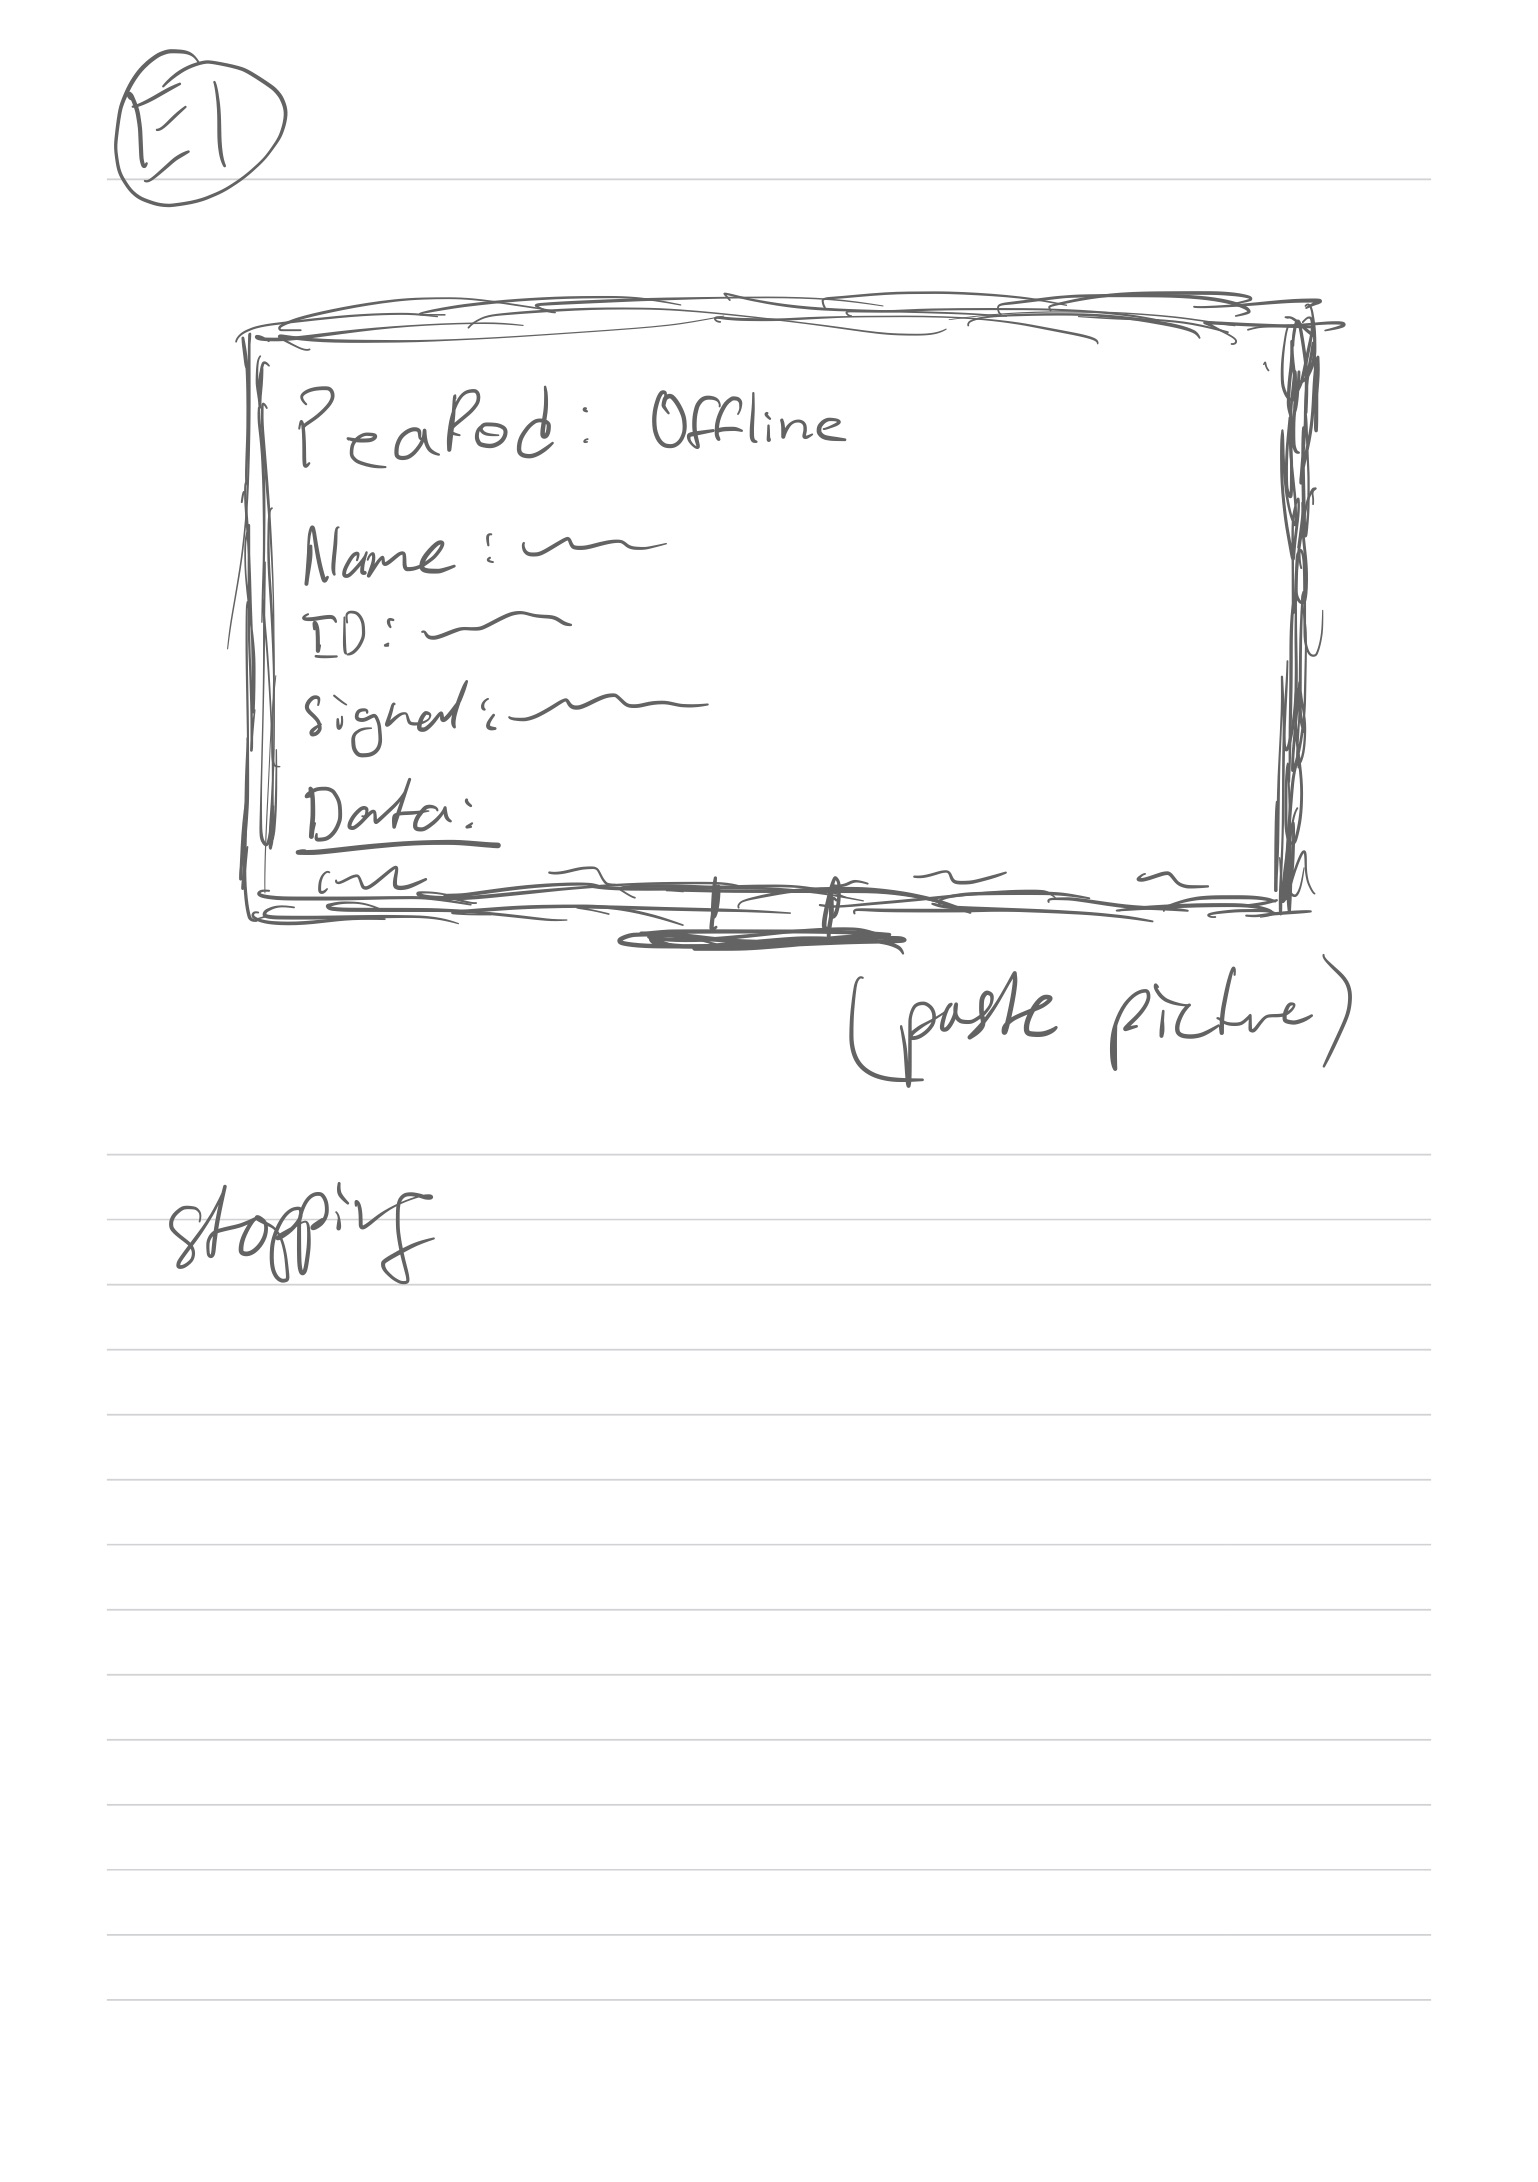 E1
PeaPod: Offline
Name:
ID:
signed:
Data:
(paste picture)
stopping